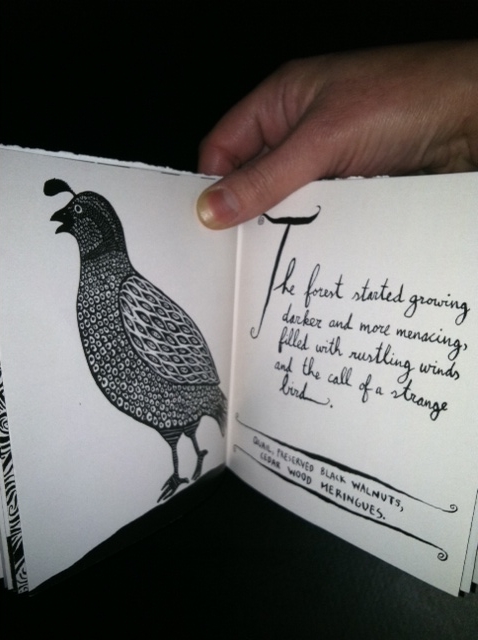 The forest started growing
darker and more menacing,
filled with rustling winds
and the call of a strange
bird.
QUAIL, PRESERVED BLACK WALNUTS,
CEDAR WOOD MERINGUES.